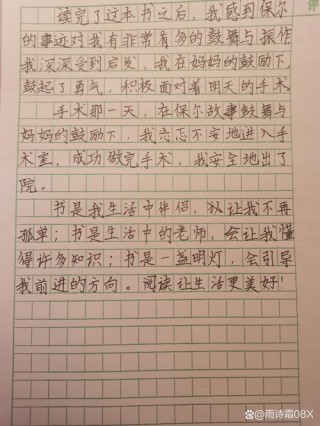 读完了这本书之后，我感到保尔
的事迹对我有非常有多的鼓舞与振作
我深深受到启发，我在妈妈的鼓励下，
鼓起了勇气，积极面对着明天的手术
手术那一天，在保尔故事鼓舞与
妈妈的鼓励下，我忐忑不安地进入手
术室，成功做完手术，我安全地出了
院。
书是我生活中伴侣，从让我不再
孤单；书是生活中的老师，会让我懂
得许多知识；书是一盏明灯，会引导
我前进的方向。阅读让生活更美好！
评
@雨诗霜08X